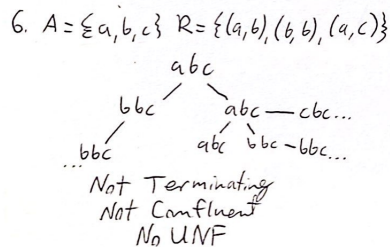 6. A = {a, b, c} R = {(a, b), (b, b), (a, c)}
abc
bbc abc — cbc...
...bbc abc bbc - bbc...
Not Terminating
Not Confluent
No UNF